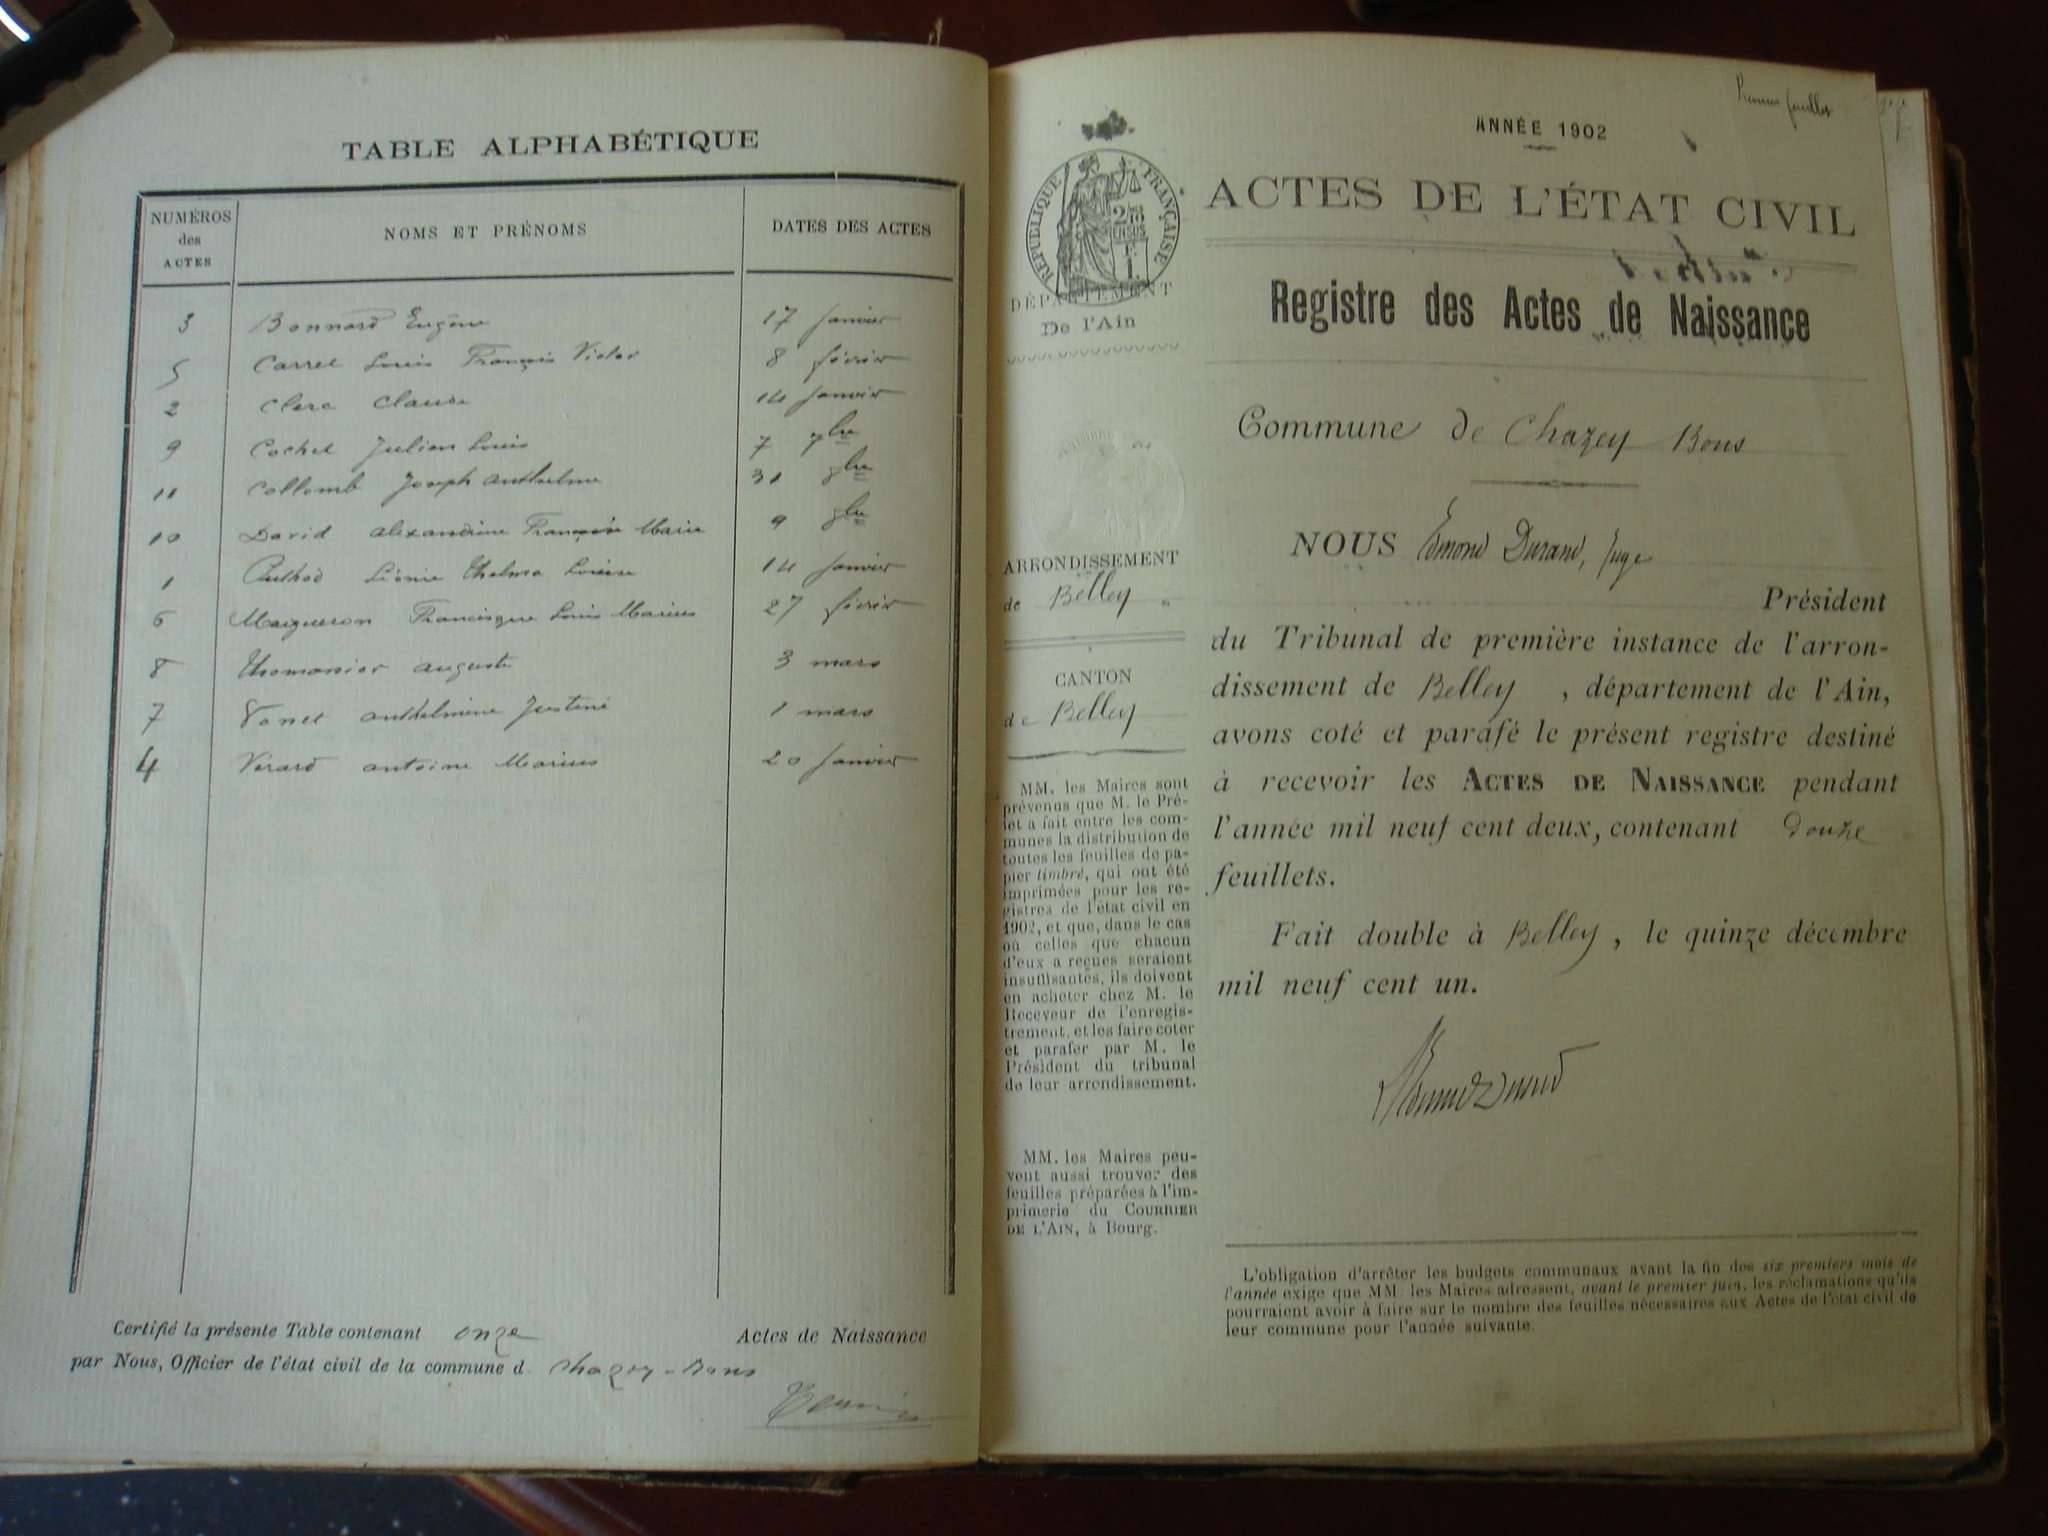 TABLE ALPHABÉTIQUE
NUMÉROS des ACTES
NOMS ET PRÉNOMS
DATES DES ACTES
3 Bonnard Eugène 17 Janvier
5 Carrel Louis François Victor 8 février
2 Clerc Claude 14 Janvier
9 Cochet Julien Louis 7 7bre
11 Collomb Joseph Anthelme 31 8bre
10 David Alexandrine Françoise Marie 9 8bre
1 Léonie Thelma Louise 14 Janvier
6 Maigueron Francisque Louis Marius 27 février
8 Thomassier Auguste 3 mars
7 Anthelmine Justine 1 mars
4 Vérard Antoine Marius 20 Janvier
Certifié la présente Table contenant onze Actes de Naissance
par Nous, Officier de l'état civil de la commune d Chazey-Bons
Premier feuillet
ANNÉE 1902
ACTES DE L'ÉTAT CIVIL
RÉPUBLIQUE FRANÇAISE
DÉPARTEMENT
De l'Ain
Registre des Actes de Naissance
Commune de Chazey Bons
NOUS Edmond Durand, Juge
Président
du Tribunal de première instance de l'arron-
dissement de Belley, département de l'Ain,
avons coté et parafé le présent registre destiné
à recevoir les ACTES DE NAISSANCE pendant
l'année mil neuf cent deux, contenant douze
feuillets.
Fait double à Belley, le quinze décembre
mil neuf cent un.
ARRONDISSEMENT
de Belley
CANTON
de Belley
MM. les Maires sont
prévenus que M. le Pré-
fet a fait entre les com-
munes la distribution de
toutes les feuilles de pa-
pier timbré, qui ont été
imprimées pour les re-
gistres de l'état civil en
1902, et que, dans le cas
où celles que chacun
d'eux a reçues seraient
insuffisantes, ils doivent
en acheter chez M. le
Receveur de l'enregis-
trement, et les faire coter
et parafer par M. le
Président du tribunal
de leur arrondissement.
MM. les Maires peu-
vent aussi trouver des
feuilles préparées à l'im-
primerie du COURRIER
DE L'AIN, à Bourg.
L'obligation d'arrêter les budgets communaux avant la fin des six premiers mois de
l'année exige que MM. les Maires adressent, avant le premier juin, les réclamations qu'ils
pourraient avoir à faire sur le nombre des feuilles nécessaires aux Actes de l'état civil de
leur commune pour l'année suivante.